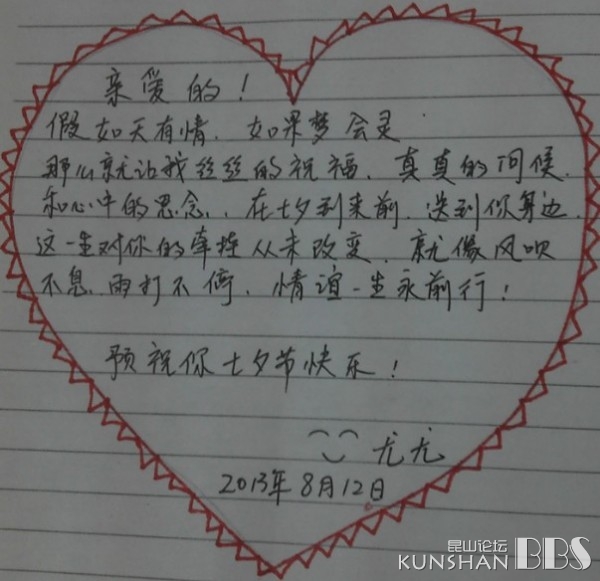 亲爱的！
假如天有情、如果梦会灵
那么就让我丝丝的祝福、真真的问候、
和心中的思念、在七夕到来前、送到你身边、
这一生对你的牵挂从未改变、就像风吹
不息、雨打不停、情谊一生永前行！
预祝你七夕节快乐！
尤尤
2013年8月12日
昆山论坛
KUNSHAN BBS